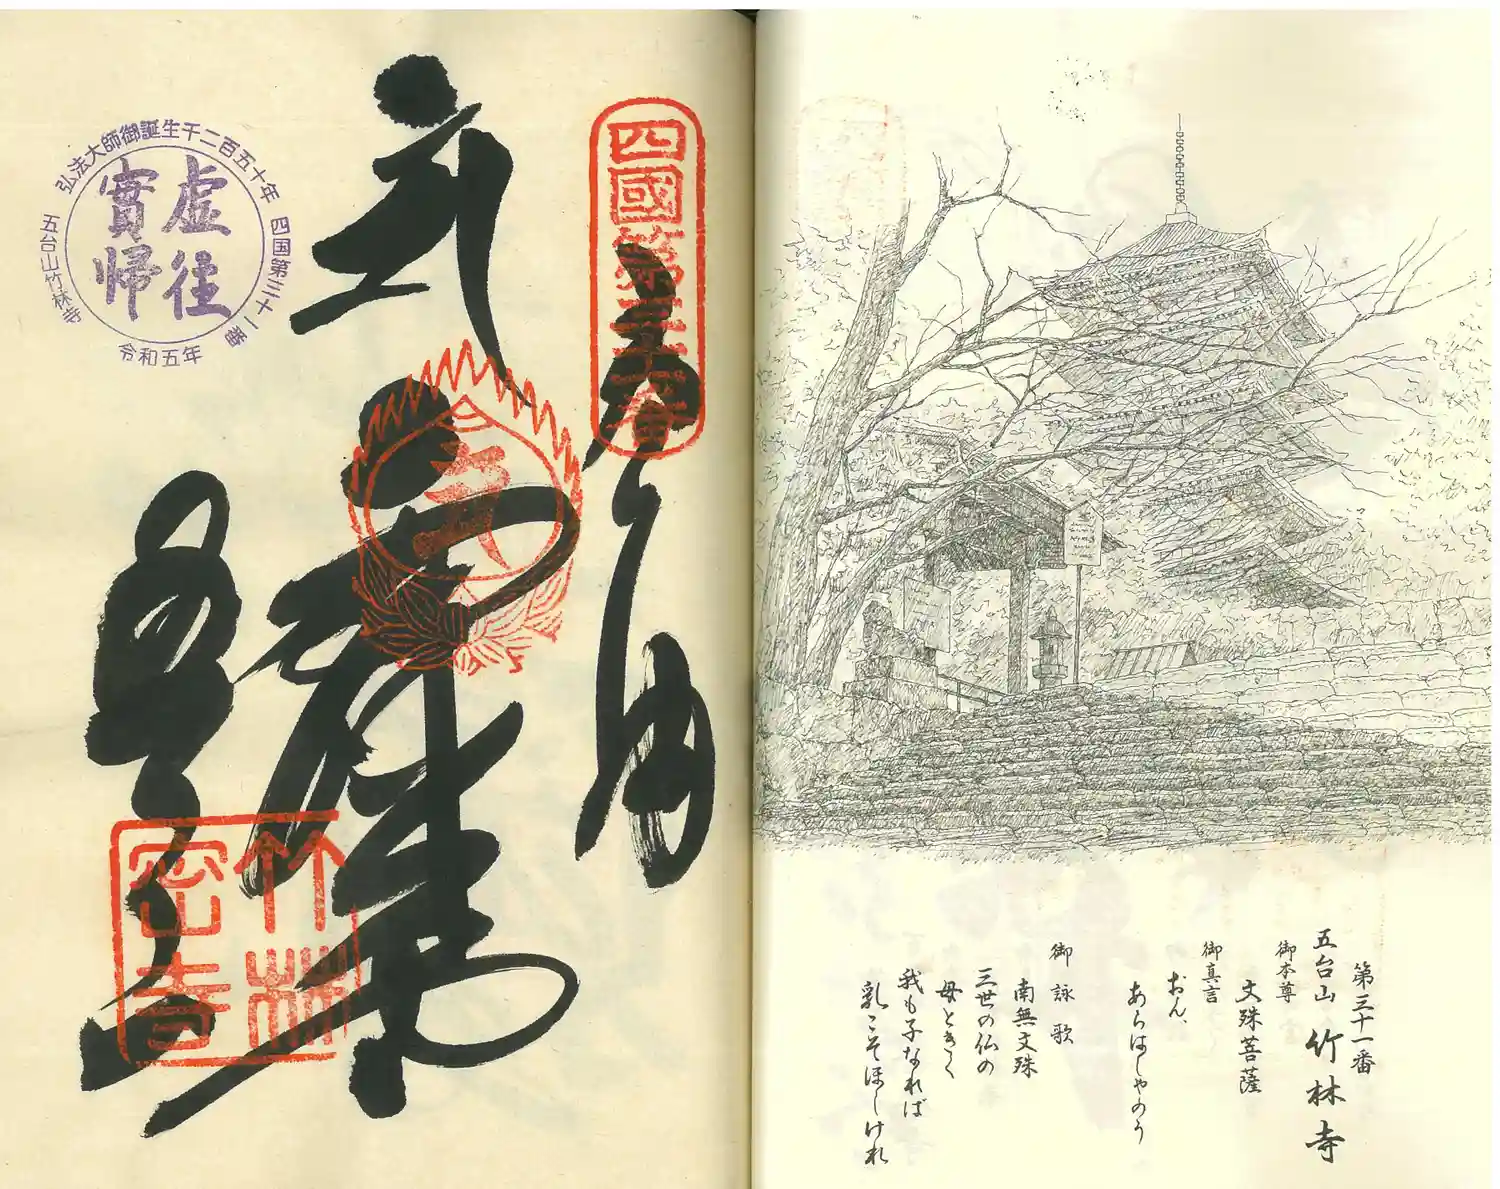 第三十一番
五台山 竹林寺
御本尊
文殊菩薩
御真言
おん、
あらはしゃのう
御詠歌
南無文殊
三世の仏の
母ときく
我も子なれば
乳こそほしけれ
四國第三十一番
奉納
竹林
密寺
弘法大師御誕生千二百五十年
四国第三十一番
五台山竹林寺
令和五年
虚往
實帰